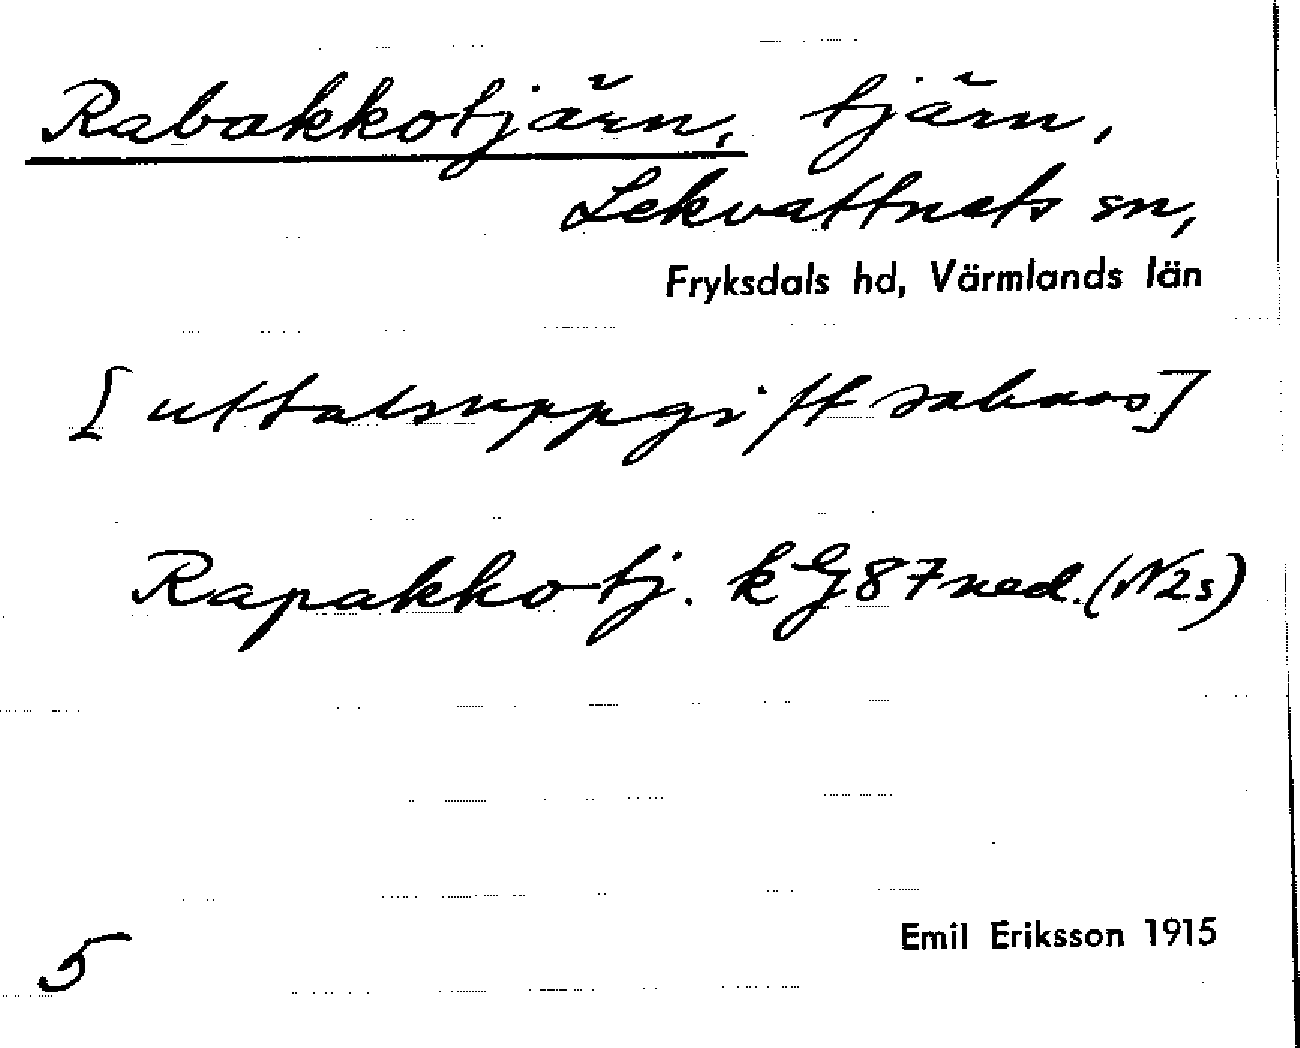 Rabakkotjärn, tjärn,
Lekvattnets sn,
Fryksdals hd, Värmlands län
[uttalsuppgift saknas]
Rapakkotj. kG87ned. (N2s)
5
Emil Eriksson 1915